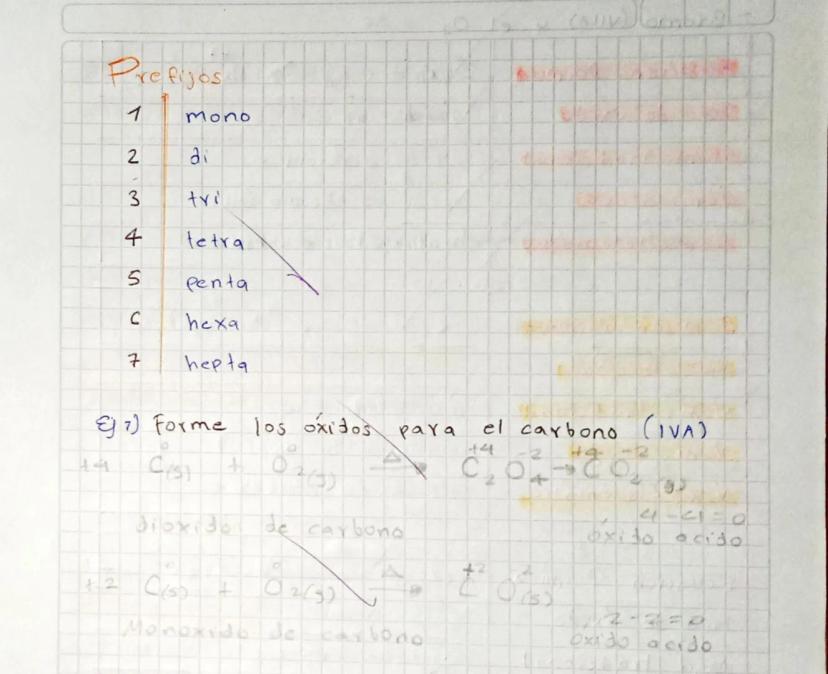 Prefijos
1 mono
2 di
3 tri
4 tetra
5 penta
6 hexa
7 hepta
Ej 1) Forme los óxidos para el carbono (IVA)
+4 C⁰(s) + O⁰2(g) Δ→ C⁺⁴2 O⁻²4 → C⁺⁴ O⁻²2 (g)
4-4=0
dioxido de carbono óxido acido
+2 C⁰(s) + O⁰2(g) Δ→ C⁺² O⁻²(s)
2-2=0
Monoxido de carbono óxido acido